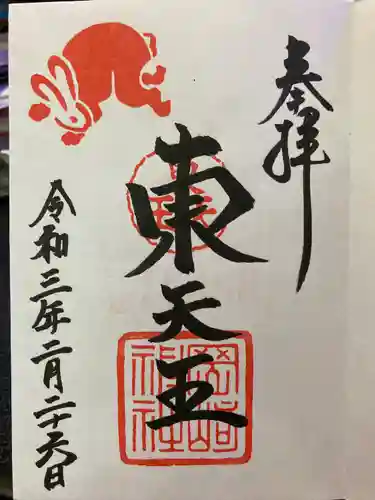 奉拝
東天王
岡﨑神社
令和三年二月二十六日